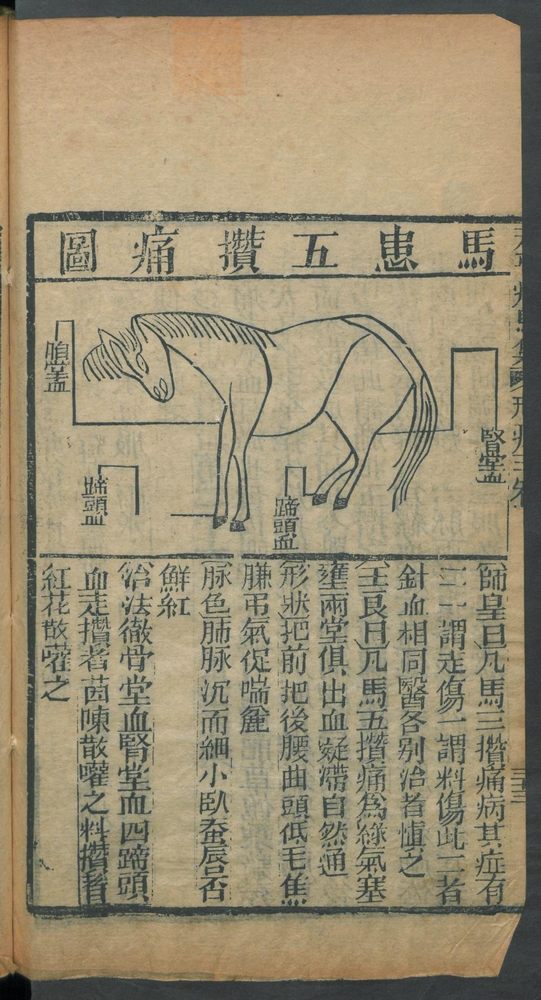 馬患五攢痛圖
胸堂血
蹄頭血
蹄頭血
腎堂血
師皇曰凡馬五攢痛病其症有
二一謂走傷一謂料傷此二者
針血相同醫各别治者慎之
王良曰凡馬五攢痛為緣氣塞
壅兩堂俱出血凝滯自然通
形狀把前把後腰曲頭低毛焦
膁弔氣促喘麄
脉色肺脉沉而細小臥蚕唇舌
鮮紅
治法徹骨堂血腎堂血四蹄頭
血走攢者茵陳散嚾之料攢者
紅花散嚾之